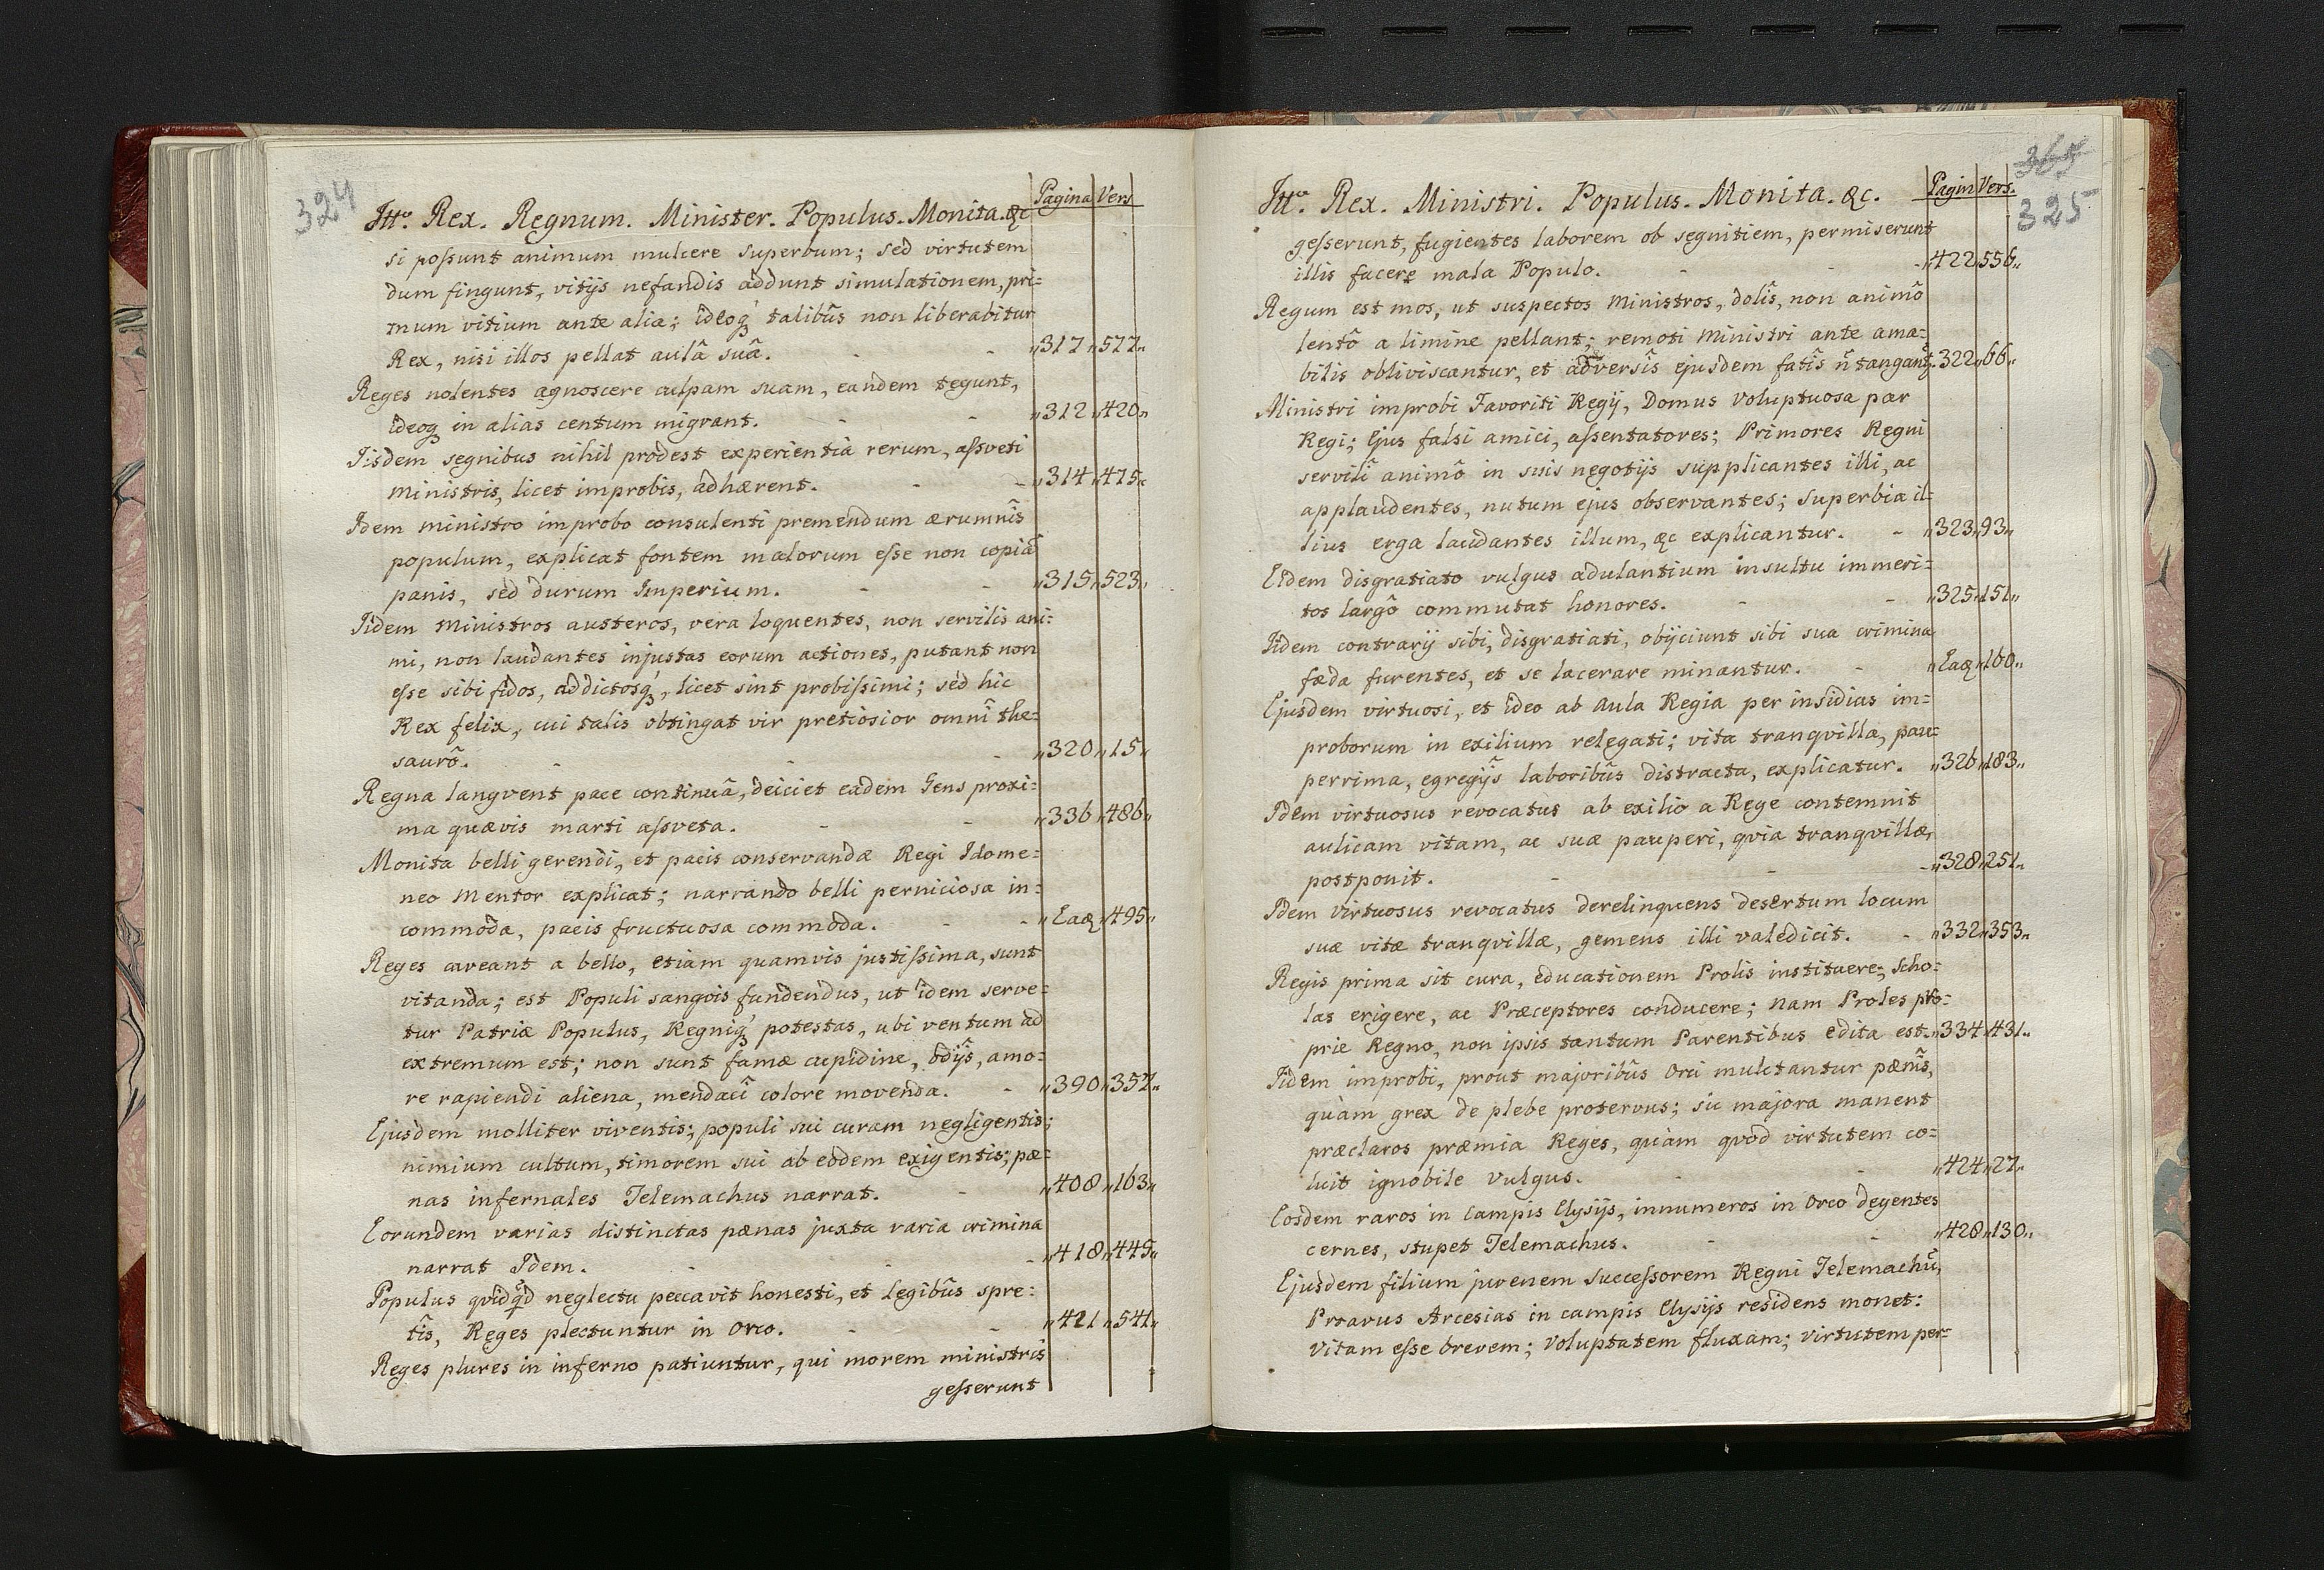 324
Ittº Rex. Regnum. Minister. Populus. Monita. &c Pagina Vers
si possunt animum mulcere superbum; sed virtutem
dum fingunt, vitijs nefandis addunt simulationem, pri=
mum vitium ante alia; ideoq́ talibûs non liberabitur
Rex, nisi illos pellat aulâ suâ. - - „317„577„
Reges nolentes agnoscere culpam suam, eandem tegunt,
ideoq in alias centum migrant. - - „312„420„
Iisdem segnibus nihil prodest experientia rerum, assveti
ministris, licet improbis, adhærent. - - „314„475„
Idem ministro improbo consulenti premendum ærumnîs
populum, explicat fontem malorum esse non copiâ
panis, sed durum Imperium. - - „315„523„
Iidem Ministros austeros, vera loquentes, non servilis ani=
mi, non laudantes injustas eorum actiones, putant non
esse sibi fidos, addictosq́, licet sint probissimi; sed hic
Rex felix, cui talis obtingat vir pretiosior omnî the=
saurô. - - - „320„15„
Regna langvent pace continuâ, deiciet eadem Gens proxi=
ma quævis marti assveta. - - „336„486„
Monita belli gerendi, et pacis conservandæ Regi Idome=
neo Mentor explicat; narrando belli perniciosa in=
commoda, pacis fructuosa commoda. - - „Eaq„495„
Reges caveant a bello, etiam quamvis justissima, sunt
vitanda; est Populi sangvis fundendus, ut idem serve=
tur Patriæ Populus, Regniq́ potestas, ubi ventum ad
extremum est; non sunt famæ cupidine, odijs, amo=
re rapiendi aliena, mendacî colore movenda. - „390„357„
Ejusdem molliter viventis; populi sui curam negligentis;
nimium cultum, timorem sui ab eodem exigentis; pæ=
nas infernales Telemachus narrat. - „408„163„
Eorundem varias distinctas pænas juxta varia crimina
narrat Idem. - - - „418„445„
Populus qvidqd neglectu peccavit honesti, et legibûs spre=
tîs, Reges plectuntur in Orco. - - „421„541„
Reges plures in inferno patiuntur, qui morem ministris
gesserunt
365
325
Ittº. Rex. Ministri. Populus. Monita. &c. Pagin Vers.
gesserunt, fugientes laborem ob segnitiem, permiserunt
illis facere mala Populo. - - - „422„556„
Regum est mos, ut suspectos Ministros, dolîs, non animô
lentô a limine pellant; remoti Ministri ante ama=
bilis obliviscantur, et adversîs ejusdem fatîs n̄ tangant̃. 322„66„
Ministri improbi Favoriti Regij, Domus Voluptuosa par
Regi; Ejus falsi amici, assentatores; Primores Regni
servilî animô in suis negotijs supplicantes illi, ac
applaudentes, nutum ejus observantes; superbia il=
lius erga laudantes illum, &c explicantur. - „323„93„
Eidem disgratiato vulgus adulantium insultu immeri=
tos largô commutat honores. - - „325„151„
Iidem contrarij sibi, disgratiati, obijciunt sibi sua crimina
fæda furentes, et se lacerare minantur. - „Eaq„160„
Ejusdem virtuosi, et ideo ab Aula Regia per insidias im=
proborum in exilium relegati; vita tranqvilla, pau=
perrima, egregijs laboribûs distracta, explicatur. „326„183„
Idem virtuosus revocatus ab exilio a Rege contemnit
aulicam vitam, ac suæ pauperi, qvia tranqvillæ,
postponit. - - - „328„251„
Idem virtuosus revocatus derelinquens desertum locum
suæ vitæ tranqvillæ, gemens illi valedicit. - „332„353„
Regis prima sit cura, educationem Prolis instituere, Scho=
las erigere, ac Præceptores conducere; nam Proles pro=
prie Regno, non ipsis tantum Parentibus edita est. „334„431„
Iidem improbi, prout majoribûs Orci mulctantur pænîs,
quàm grex de plebe protervus; sic majora manent
præclaros præmia Reges, quàm qvòd virtutem co=
luit ignobile vulgus. - - „424„27„
Eosdem raros in Campis Elysijs, innumeros in Orco degentes
cernes, stupet Telemachus. - - „428„130„
Ejusdem filium juvenem successorem Regni Telemachũ,
Proavus Arcesias in campis Elysijs residens monet:
Vitam esse brevem; Voluptatem fluxam; virtutem per=